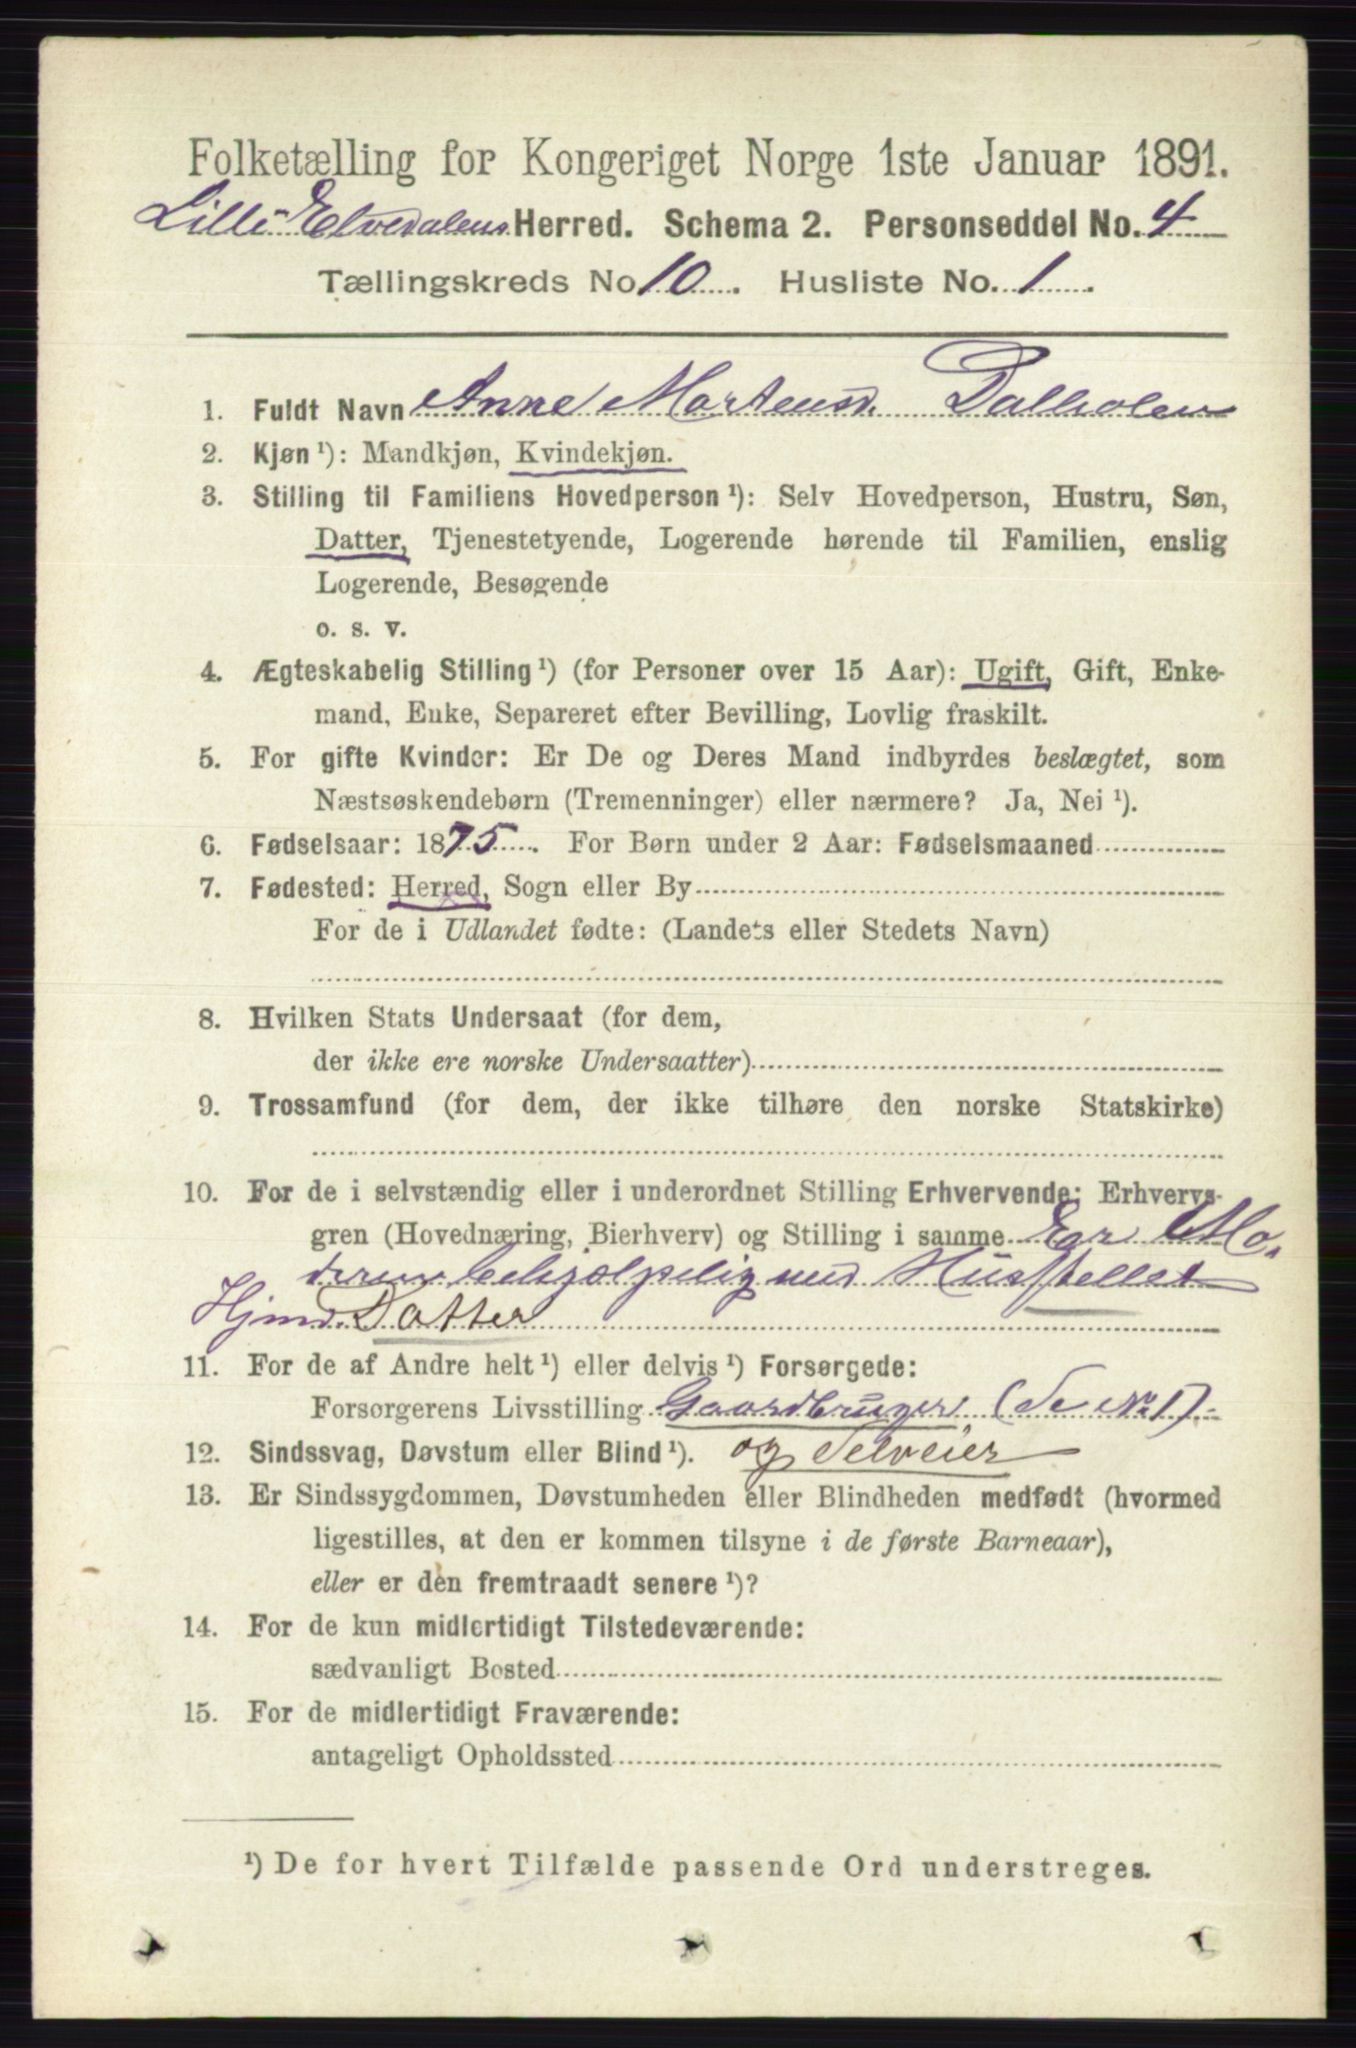 Folketælling for Kongeriget Norge 1ste Januar 1891.
Lille Elvedalens Herred. Schema 2. Personseddel No. 4
Tællingskreds No. 10. Husliste No. 1.
1. Fuldt Navn Anne Martensd. Dalholen
2. Kjøn ¹): Mandkjøn, Kvindekjøn.
3. Stilling til Familiens Hovedperson ¹): Selv Hovedperson, Hustru, Søn,
Datter, Tjenestetyende, Logerende hørende til Familien, enslig
Logerende, Besøgende
o. s. v.
4. Ægteskabelig Stilling ¹) (for Personer over 15 Aar): Ugift, Gift, Enke-
mand, Enke, Separeret efter Bevilling, Lovlig fraskilt.
5. For gifte Kvinder: Er De og Deres Mand indbyrdes beslægtet, som
Næstsøskendebørn (Tremenninger) eller nærmere? Ja, Nei ¹).
6. Fødselsaar: 1875. For Børn under 2 Aar: Fødselsmaaned
7. Fødested: Herred, Sogn eller By
For de i Udlandet fødte: (Landets eller Stedets Navn)
8. Hvilken Stats Undersaat (for dem,
der ikke ere norske Undersaatter)
9. Trossamfund (for dem, der ikke tilhøre den norske Statskirke)
10. For de i selvstændig eller i underordnet Stilling Erhvervende: Erhvervs-
gren (Hovednæring, Bierhverv) og Stilling i samme Er Mo-
deren behjælpelig med Husstellet
Hjmv. Datter
11. For de af Andre helt ¹) eller delvis ¹) Forsørgede:
Forsørgerens Livsstilling Gaardbruger (Se No 1).
12. Sindssvag, Døvstum eller Blind ¹). og Selveier
13. Er Sindssygdommen, Døvstumheden eller Blindheden medfødt (hvormed
ligestilles, at den er kommen tilsyne i de første Barneaar),
eller er den fremtraadt senere ¹)?
14. For de kun midlertidigt Tilstedeværende:
sædvanligt Bosted
15. For de midlertidigt Fraværende:
antageligt Opholdssted
¹) De for hvert Tilfælde passende Ord understreges.